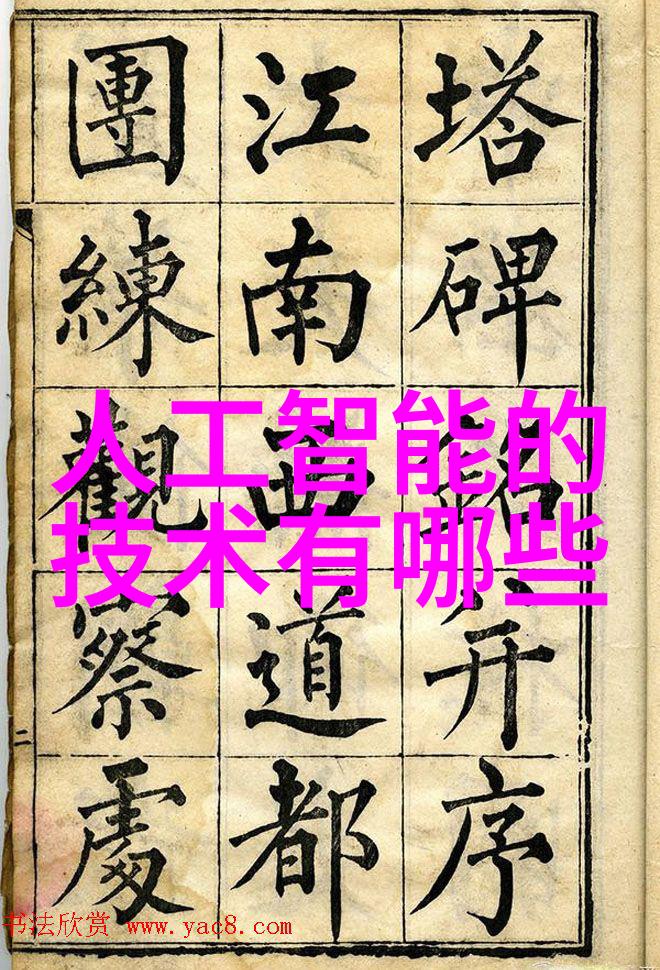 塔碑銘并序
江南西道都
團練觀察處
二
人工智能的
技术有哪些
书法欣赏 www.yac8.com